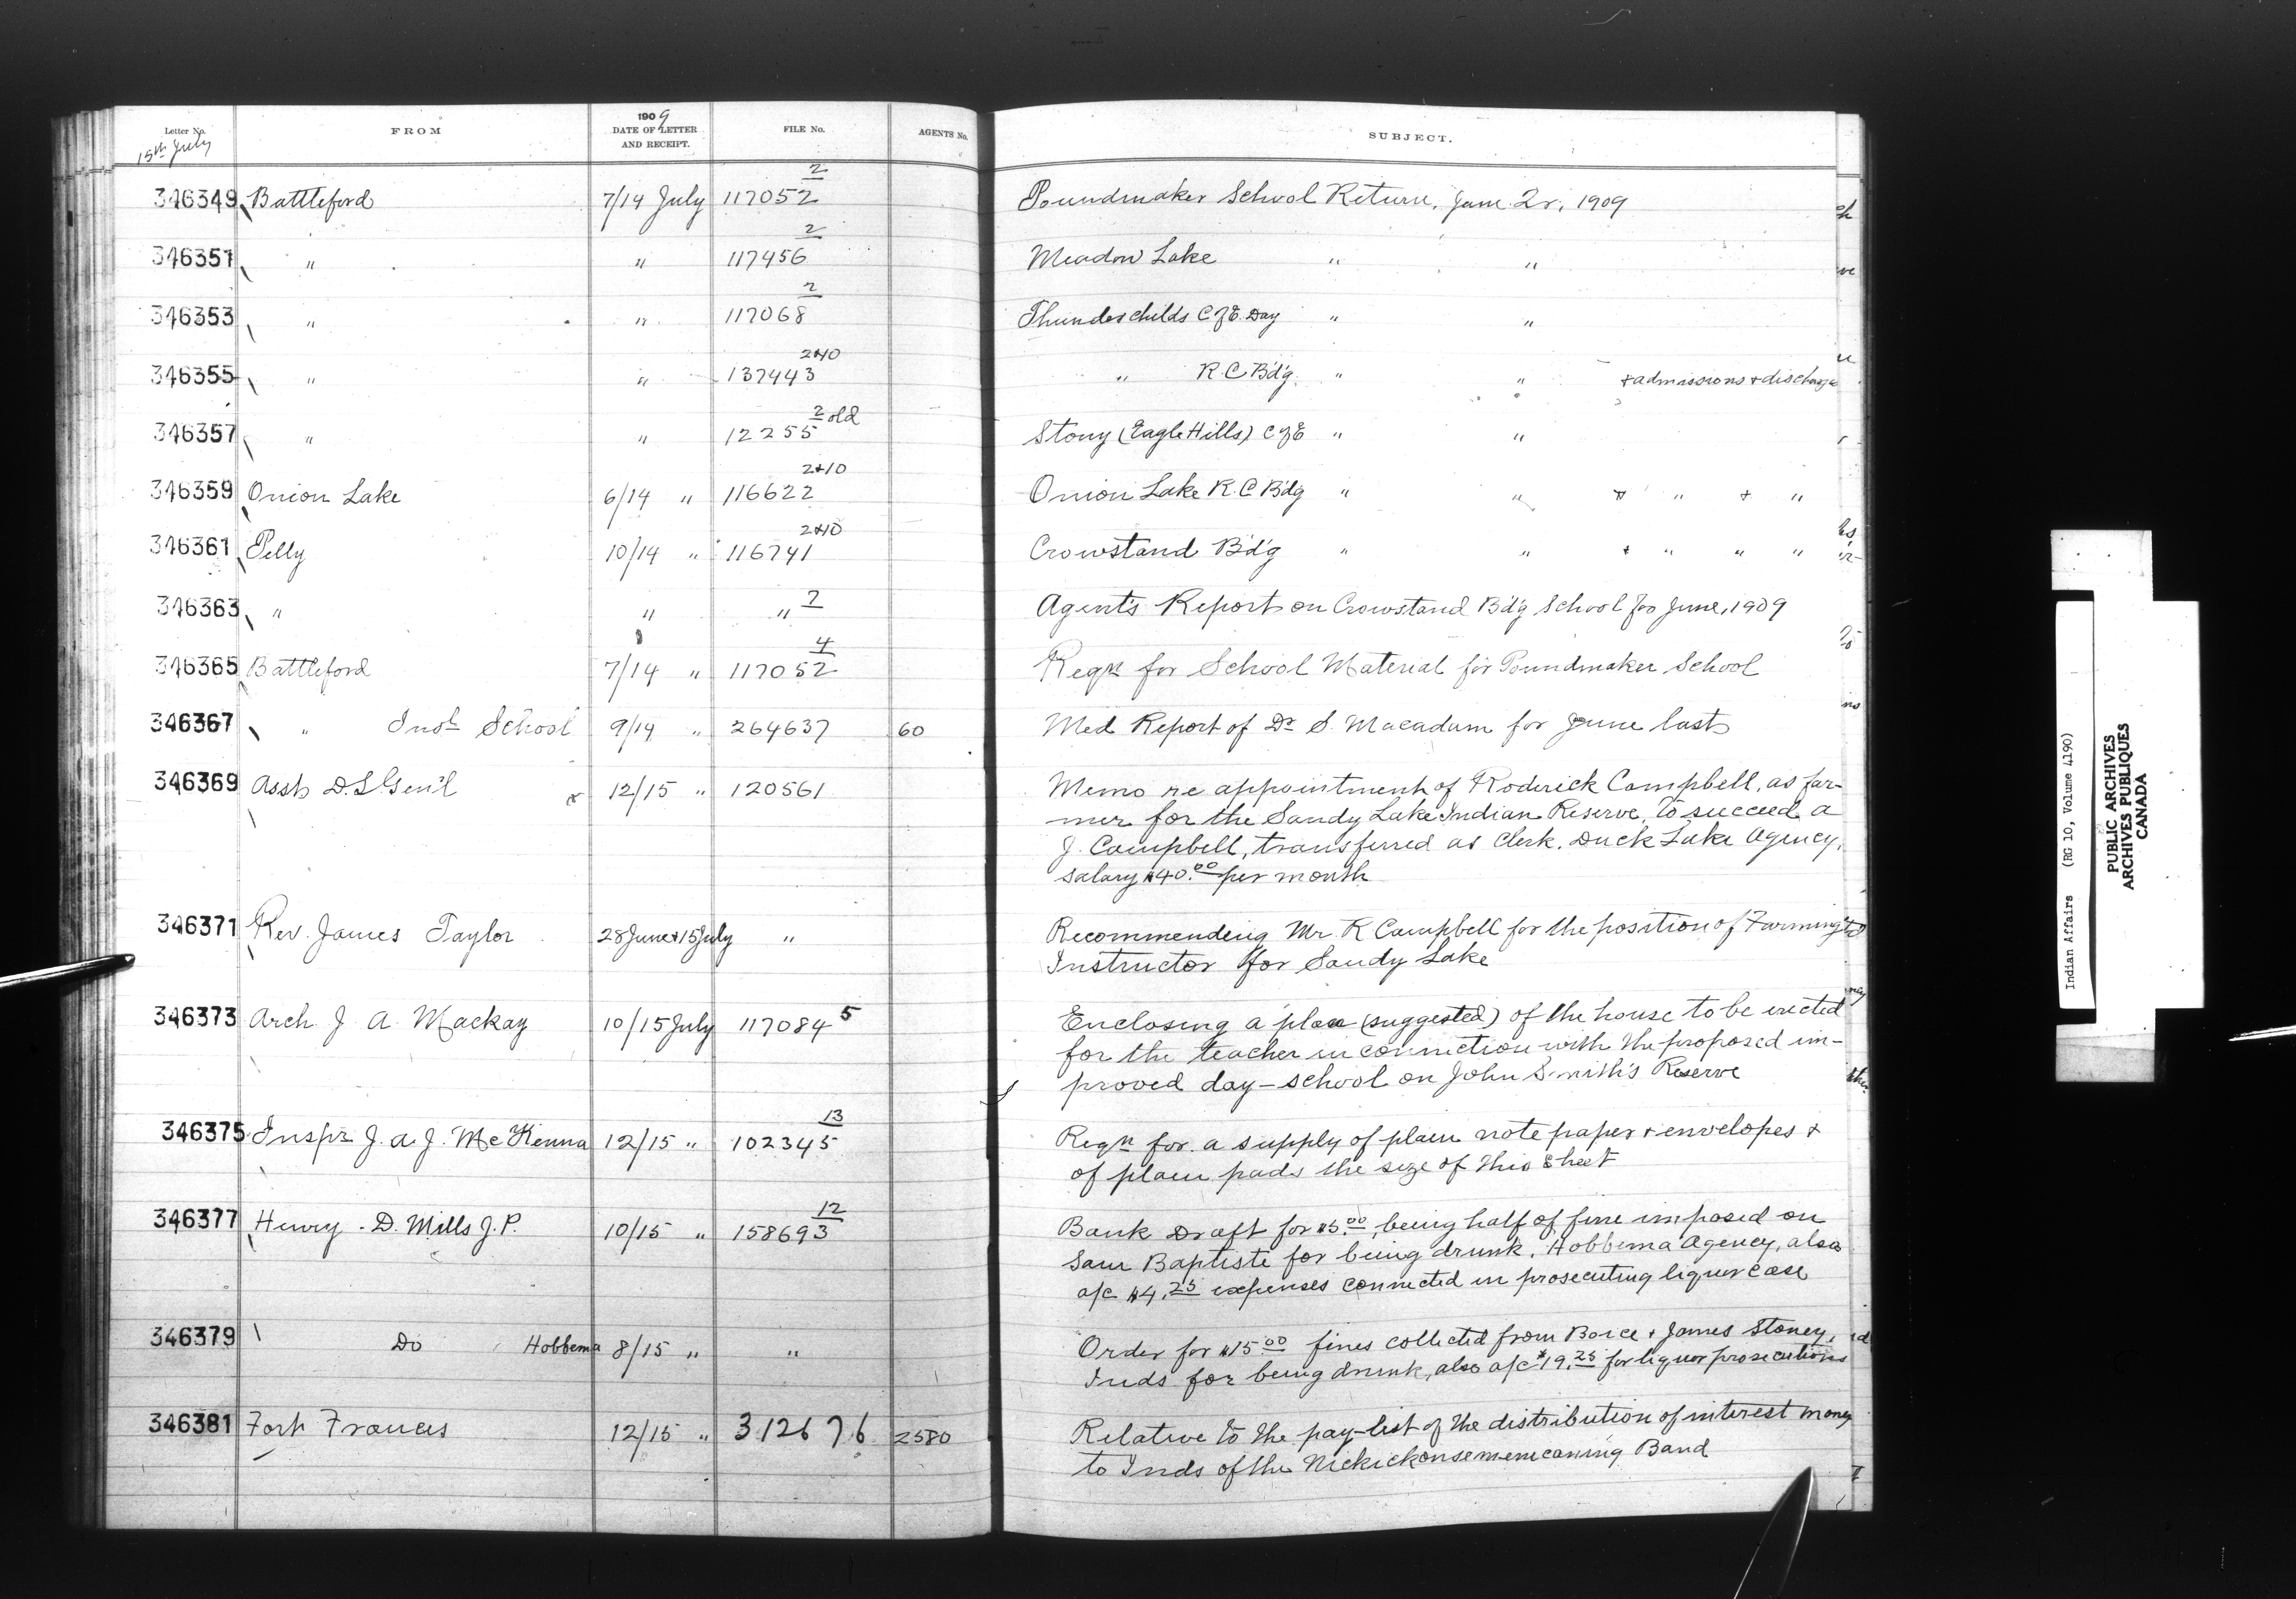 Letter No. FROM 1909 DATE OF LETTER AND RECEIPT. FILE No. AGENTS No. SUBJECT.
15th July
346349 Battleford 7/14 July 117052 2 Poundmaker School Return, June 2r, 1909
346351 " " 117456 2 Meadow Lake " "
346353 " " 117068 2 Thunderchilds C of E Day " "
346355 " " 137443 2+10 " R.C Bd'g. " " + admissions + discharges
346357 " " 12255 2 old Stony (Eagle Hills) C of E " "
346359 Onion Lake 6/14 " 116622 2+10 Onion Lake R.C Bd'g " " + " + "
346361 Pelly 10/14 " 116741 2+10 Crowstand Bd'g " " + " " "
346363 " " " 7 Agent's Report on Crowstand Bd'g School for June, 1909
346365 Battleford 7/14 " 117052 4 Reqn for School Material for Poundmaker School
346367 " Indl School 9/14 " 264637 60 Med Report of Dr S. Macadam for June last
346369 Asst D.S. Gen'l 12/15 " 120561 Memo re appointment of Roderick Campbell, as far-
mer for the Sandy Lake Indian Reserve, to succeed A
J. Campbell, transferred as Clerk. Duck Lake Agency,
salary $40.00 per month
346371 Rev. James Taylor 28 June + 15 July " Recommending Mr. R Campbell for the position of Farming
Instructor for Sandy Lake
346373 Arch. J. A. Mackay 10/15 July 117084 5 Enclosing a plan (suggested) of the house to be erected
for the teacher in connection with the proposed im-
proved day-school on John Smith's Reserve
346375 Inspr J. A. J. McKenna 12/15 " 102345 13 Reqn for a supply of plain note paper + envelopes +
of plain pads the size of this sheet
346377 Henry D. Mills J.P. 10/15 " 158693 12 Bank Draft for $5.00, being half of fine imposed on
Sam Baptiste for being drunk. Hobbema Agency, also
a/c $4.25 expenses connected in prosecuting liquor case
346379 Do Hobbema 8/15 " " Order for $15.00 fines collected from Boice + James Stoney,
Inds for being drunk, also a/c $19.25 for liquor prosecutions
346381 Fort Frances 12/15 " 312676 2580 Relative to the pay-list of the distribution of interest money
to Inds of the Nickickonsemenecaning Band
Indian Affairs (RG 10, Volume 4190)
PUBLIC ARCHIVES
ARCHIVES PUBLIQUES
CANADA